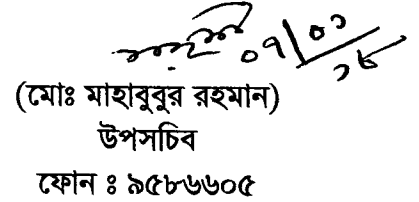 ০৭/০১/১৮
(মোঃ মাহাবুবুর রহমান)
উপসচিব
ফোন ঃ ৯৫৮৬৬০৫